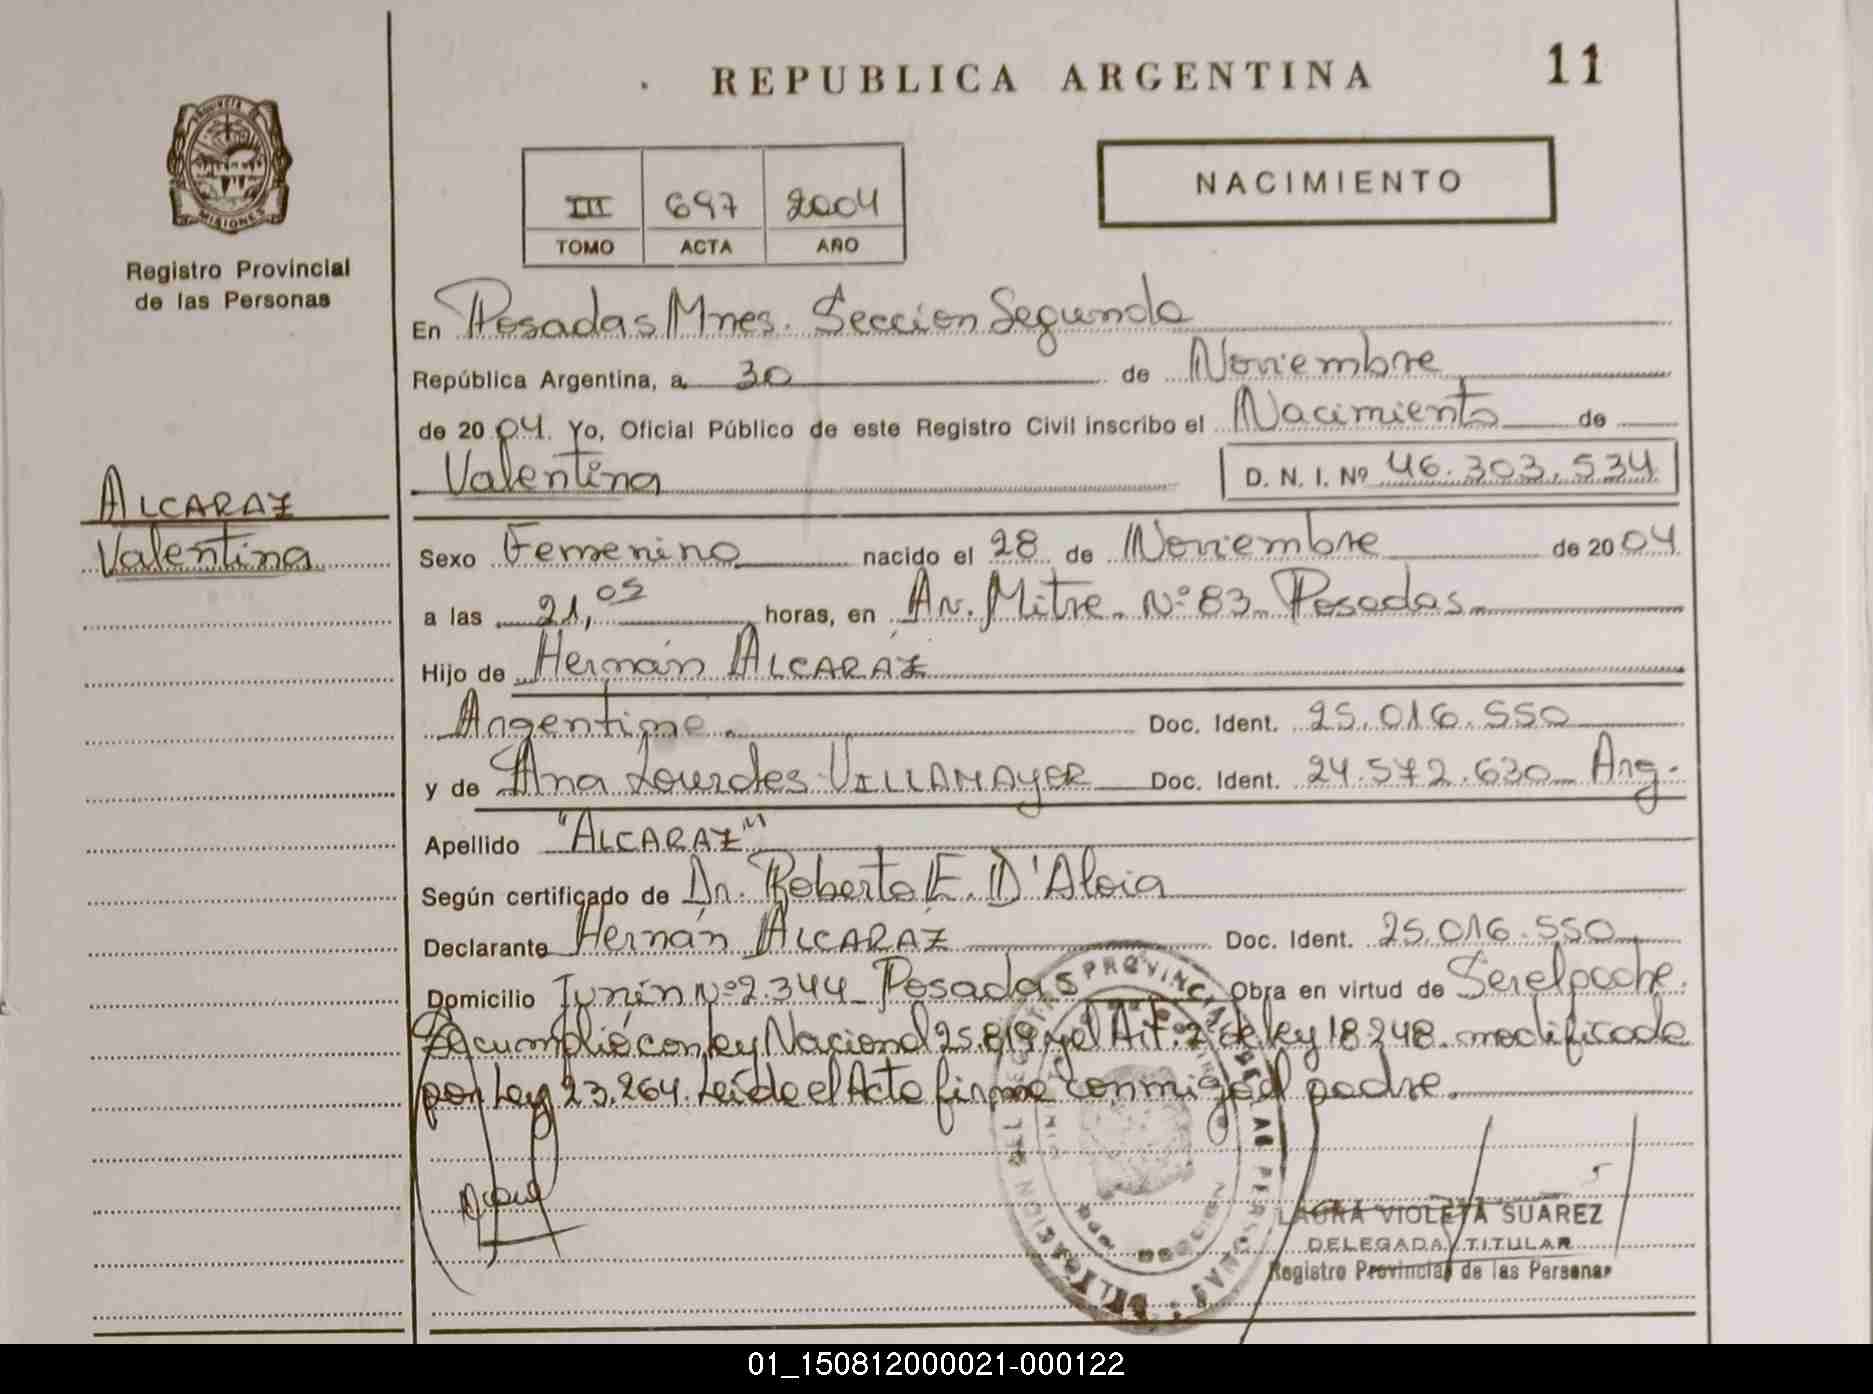 REPUBLICA ARGENTINA
11
PROVINCIA DE
MISIONES
Registro Provincial
de las Personas
III 697 2004
TOMO ACTA AÑO
NACIMIENTO
En Posadas Mnes. Seccion Segunda
República Argentina, a 30 de Noviembre
de 2004. Yo, Oficial Público de este Registro Civil inscribo el Nacimiento de
Valentina D. N. I. Nº 46.303.534
ALCARAZ
Valentina
Sexo Femenino nacido el 28 de Noviembre de 2004
a las 21,05 horas, en Av. Mitre. Nº 83 Posadas
Hijo de Hernán ALCARAZ
Argentino. Doc. Ident. 25.016.550
y de Ana Lourdes VILLAMAYOR Doc. Ident. 24.572.630 Arg.
Apellido "ALCARAZ"
Según certificado de Dr. Roberto E. D'Aloia
Declarante Hernán ALCARAZ Doc. Ident. 25.016.550
Domicilio Junín Nº 2.344 Posadas Obra en virtud de Ser el padre.
Se cumplió con ley Nacional 25.819 y el Art. 2 de ley 18.248. modificada
por Ley 23.264. Leída el Acta firma conmigo el padre.
LAURA VIOLETA SUAREZ
DELEGADA TITULAR
Registro Provincial de las Personas
01_150812000021-000122